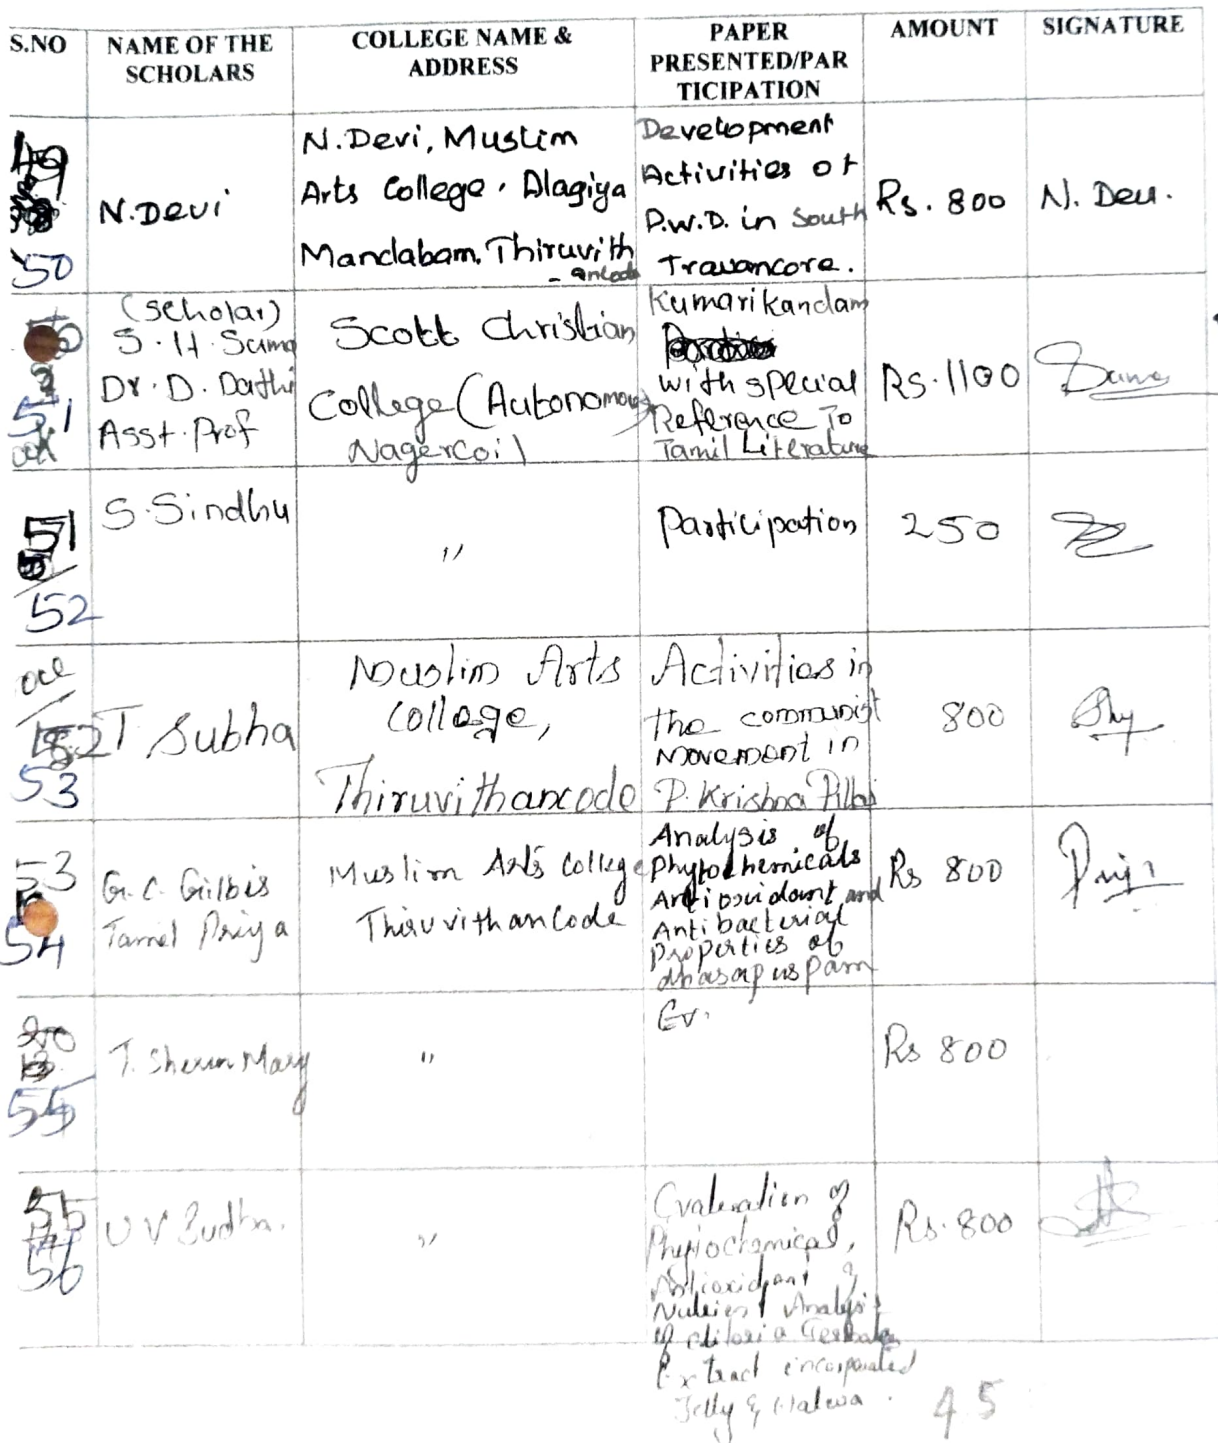 S.NO NAME OF THE SCHOLARS COLLEGE NAME & ADDRESS PAPER PRESENTED/PARTICIPATION AMOUNT SIGNATURE
49
50
N.Devi
N.Devi, Muslim
Arts College, Alagiya
Mandabam, Thiruvith
- ancode
Development
Activities of
P.W.D. in South
Travancore.
Rs. 800
N. Devi.
51
(Scholar)
S.H. Suma
Dr. D. Dathi
Asst. Prof
Scott Christian
College (Autonomous)
Nagercoil
Kumarikandam
with special
Reference To
Tamil Literature
Rs. 1100
Suma
51
52
S. Sindhu
"
Participation
250
52
53
T. Subha
Muslim Arts
College,
Thiruvithancode
Activities in
the communist
movement in
P. Krishna Pillai
800
53
54
G. C. Gilbis
Tamil Priya
Muslim Arts College
Thiruvithancode
Analysis of
Phytochemicals
Antioxidant and
Antibacterial
Properties of
dhasapuspam
Rs 800
Priya
55
T. Sherin Mary
"
Ev.
Rs 800
55
56
U V Sudha.
"
Evaluation of
Phytochemical,
Antioxidant &
Nutrient Analysis
of
Extract incorporated
Jelly & Halwa.
Rs. 800
45